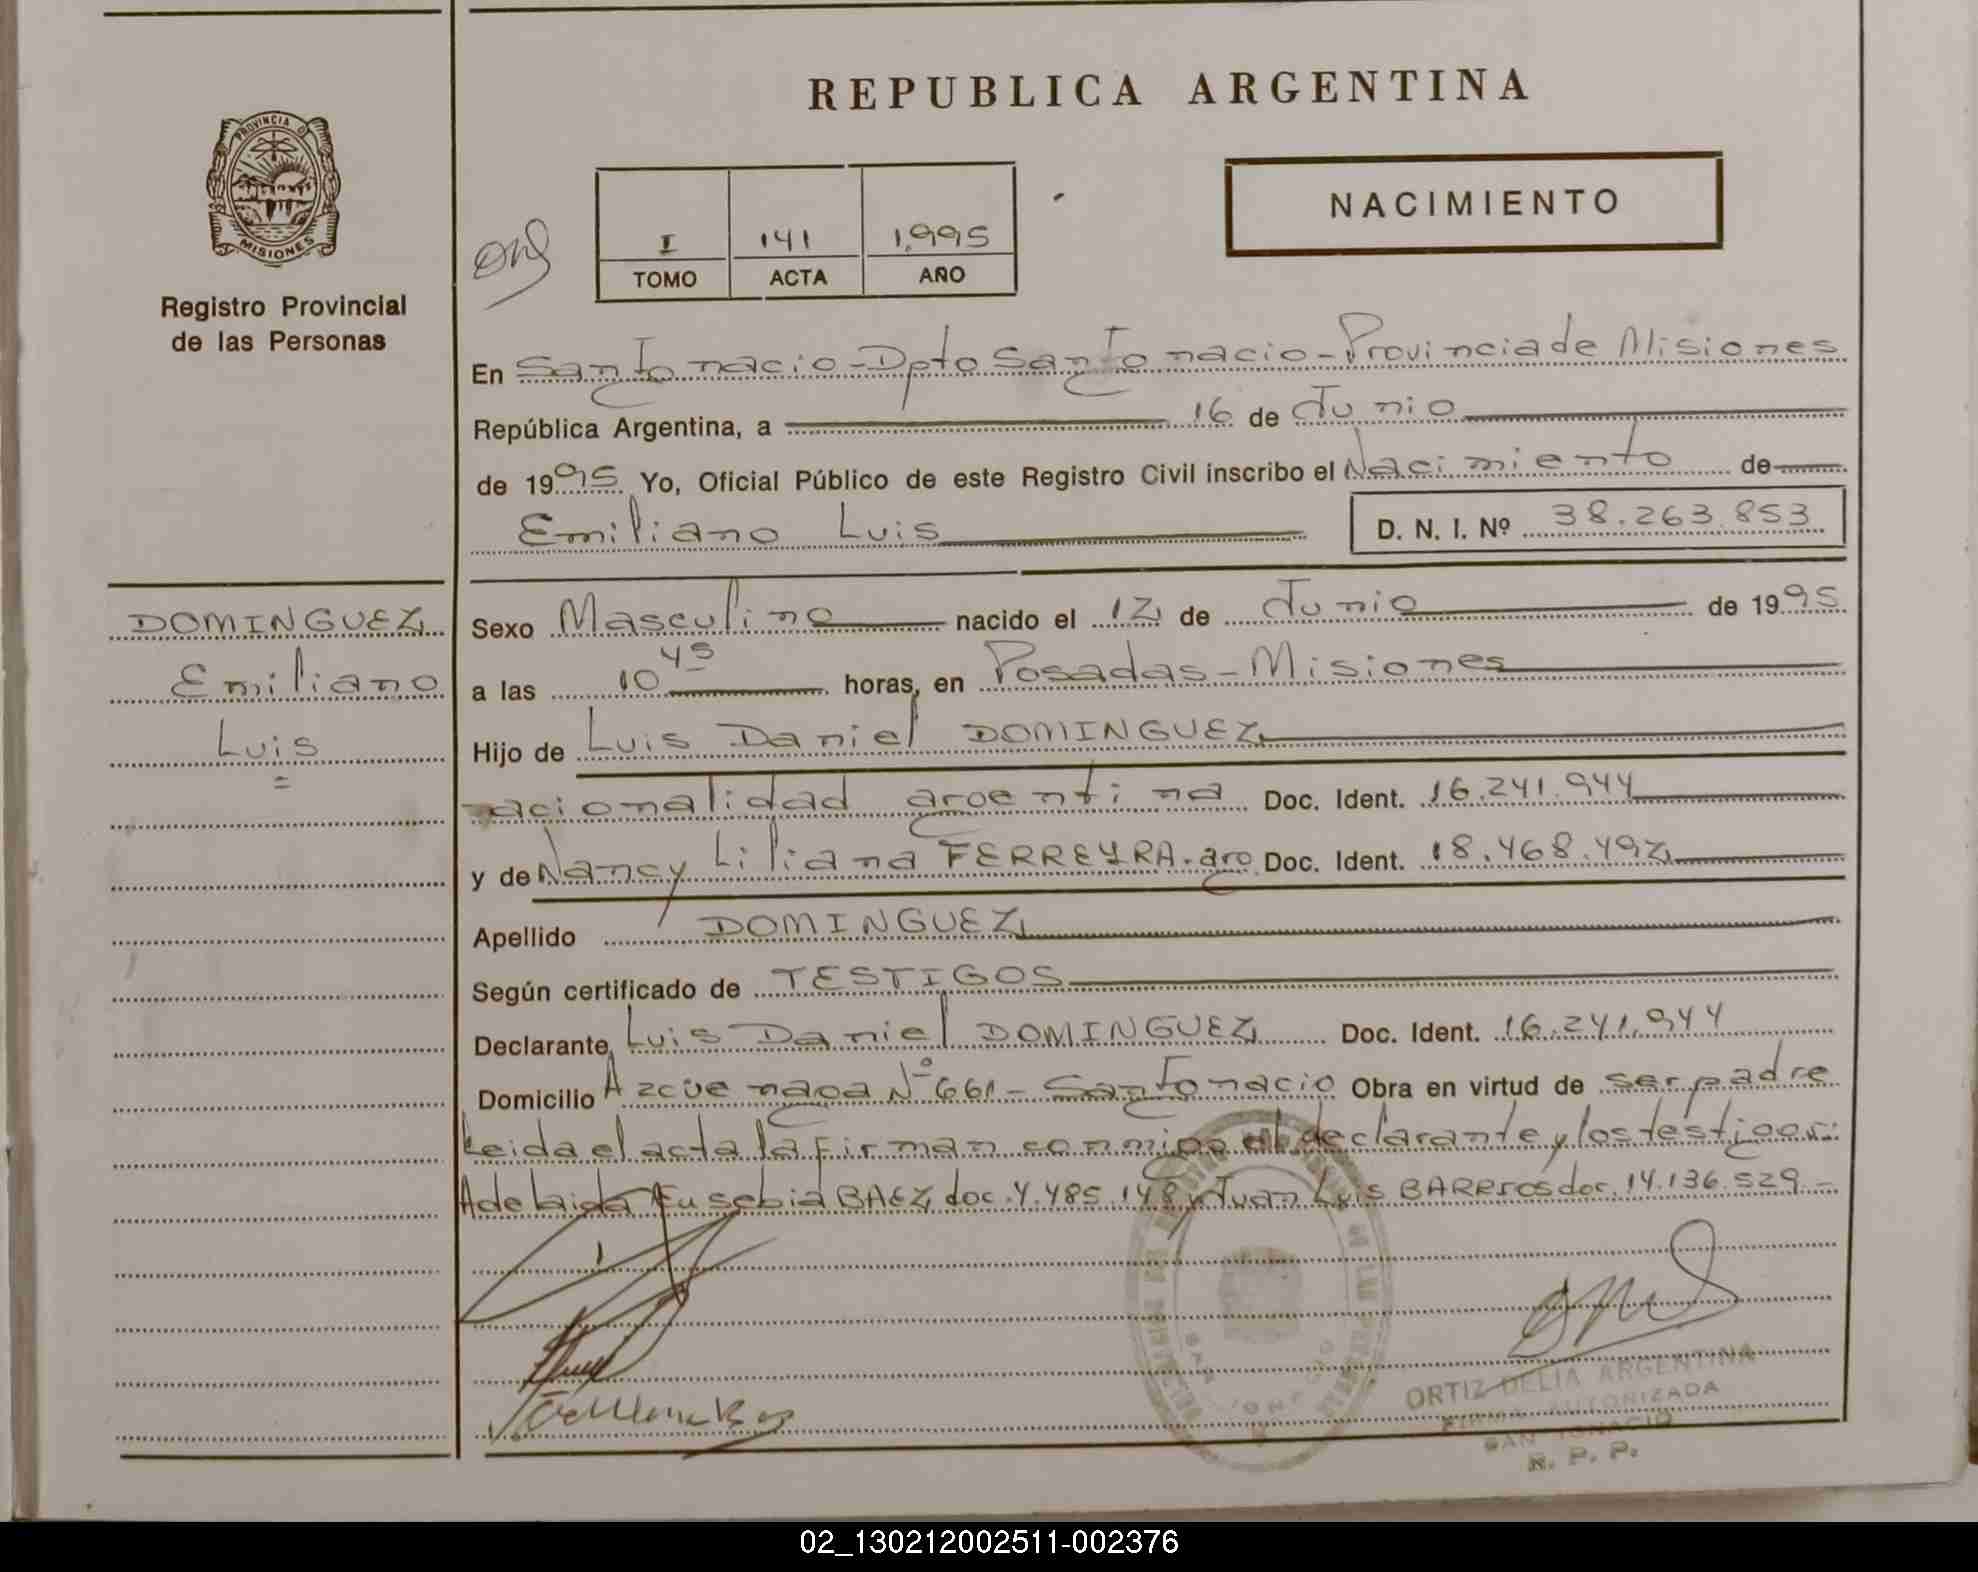 REPUBLICA ARGENTINA
PROVINCIA D
MISIONES
Registro Provincial
de las Personas
I 141 1.995
TOMO ACTA AÑO
NACIMIENTO
En San Ignacio - Dpto San Ignacio - Provincia de Misiones
República Argentina, a 16 de Junio
de 1995 Yo, Oficial Público de este Registro Civil inscribo el Nacimiento de
Emiliano Luis D. N. I. Nº 38.263.853
DOMINGUEZ
Emiliano
Luis
Sexo Masculino nacido el 12 de Junio de 1995
a las 10 45 horas, en Posadas - Misiones
Hijo de Luis Daniel DOMINGUEZ
nacionalidad argentina Doc. Ident. 16.241.944
y de Nancy Liliana FERREYRA. arg Doc. Ident. 18.468.492
Apellido DOMINGUEZ
Según certificado de TESTIGOS
Declarante Luis Daniel DOMINGUEZ Doc. Ident. 16.241.944
Domicilio Azcuenaga Nº 661 - San Ignacio Obra en virtud de ser padre
Leida el acta la firman conmigo el declarante y los testigos:
Adelaida Eusebia BAEZ doc. 4.485.148 y Juan Luis BARRIOS doc. 14.136.529 -
ORTIZ DELIA ARGENTINA
FIRMA AUTORIZADA
SAN IGNACIO
R. P. P.
02_130212002511-002376